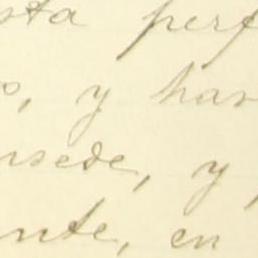 sta perf
, y has
nsede, y
nte, en